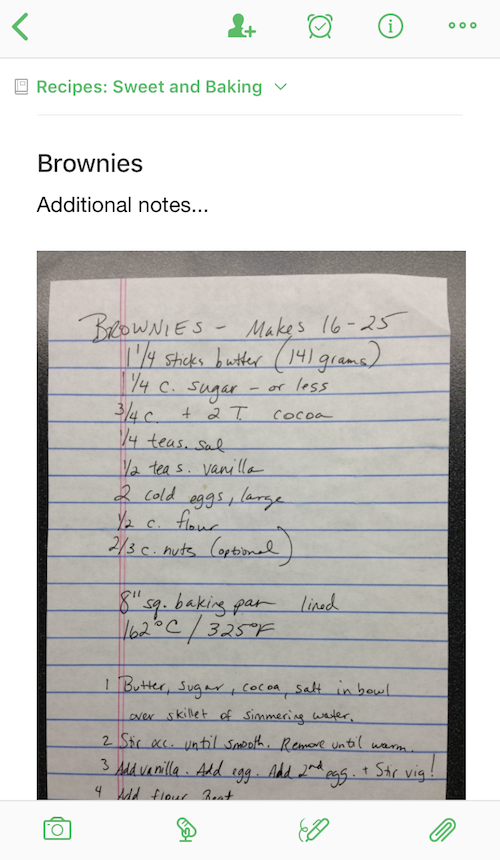 Recipes: Sweet and Baking
Brownies
Additional notes...
BROWNIES - Makes 16-25
1 1/4 sticks butter (141 grams)
1 1/4 c. sugar - or less
3/4 c. + 2 T. cocoa
1/4 teas. sal
1/2 teas. vanilla
2 cold eggs, large
1/2 c. flour
2/3 c. nuts (optional)
8" sq. baking pan lined
162°C / 325°F
1 Butter, sugar, cocoa, salt in bowl
over skillet of simmering water.
2 Stir occ. until smooth. Remove until warm.
3 Add vanilla. Add egg. Add 2nd egg. + Stir vig!
4 Add flour. Beat